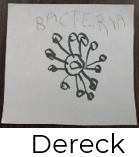 BACTERIA
Dereck